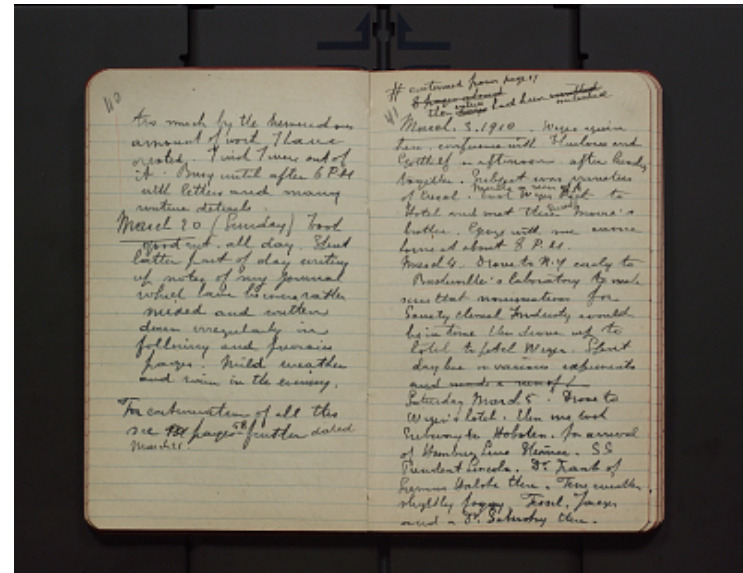 40
too much by the tremendous
amount of work I have
created. I wish I were out of
it. Busy until after 6 P.M
with letters and many
routine details.
March 20 (Sunday) Took
good rest all day. Spent
latter part of day writing
up notes of my Journal
which have become rather
mixed and written
down irregularly in
following and previous
pages. Mild weather
and rain in the evening.
For continuation of all this
see pages further dated
March 21.
# continued from page
41
March. 3. 1910. Weger again
here, conference with Thurlow and
Gotthelf in afternoon, after
together. Subject was varieties
of Resol. took Weger back to
Hotel and met there
brother.
home at about 8 P.M.
March 4. Drove to N.Y early to
Baskerville's laboratory to make
sure that nominations for
Society Chemical Industry would
be in time then drove up to
hotel to fetch Weger. Spent
day here in various experiments
and made a run of
Saturday March 5. Drove to
Weger's hotel. then we took
Subway to Hoboken. for arrival
of Hamburg Line Steamer. SS
President Lincoln. Dr. Frank of
there. Fine weather
slightly foggy.
and a Dr. there.